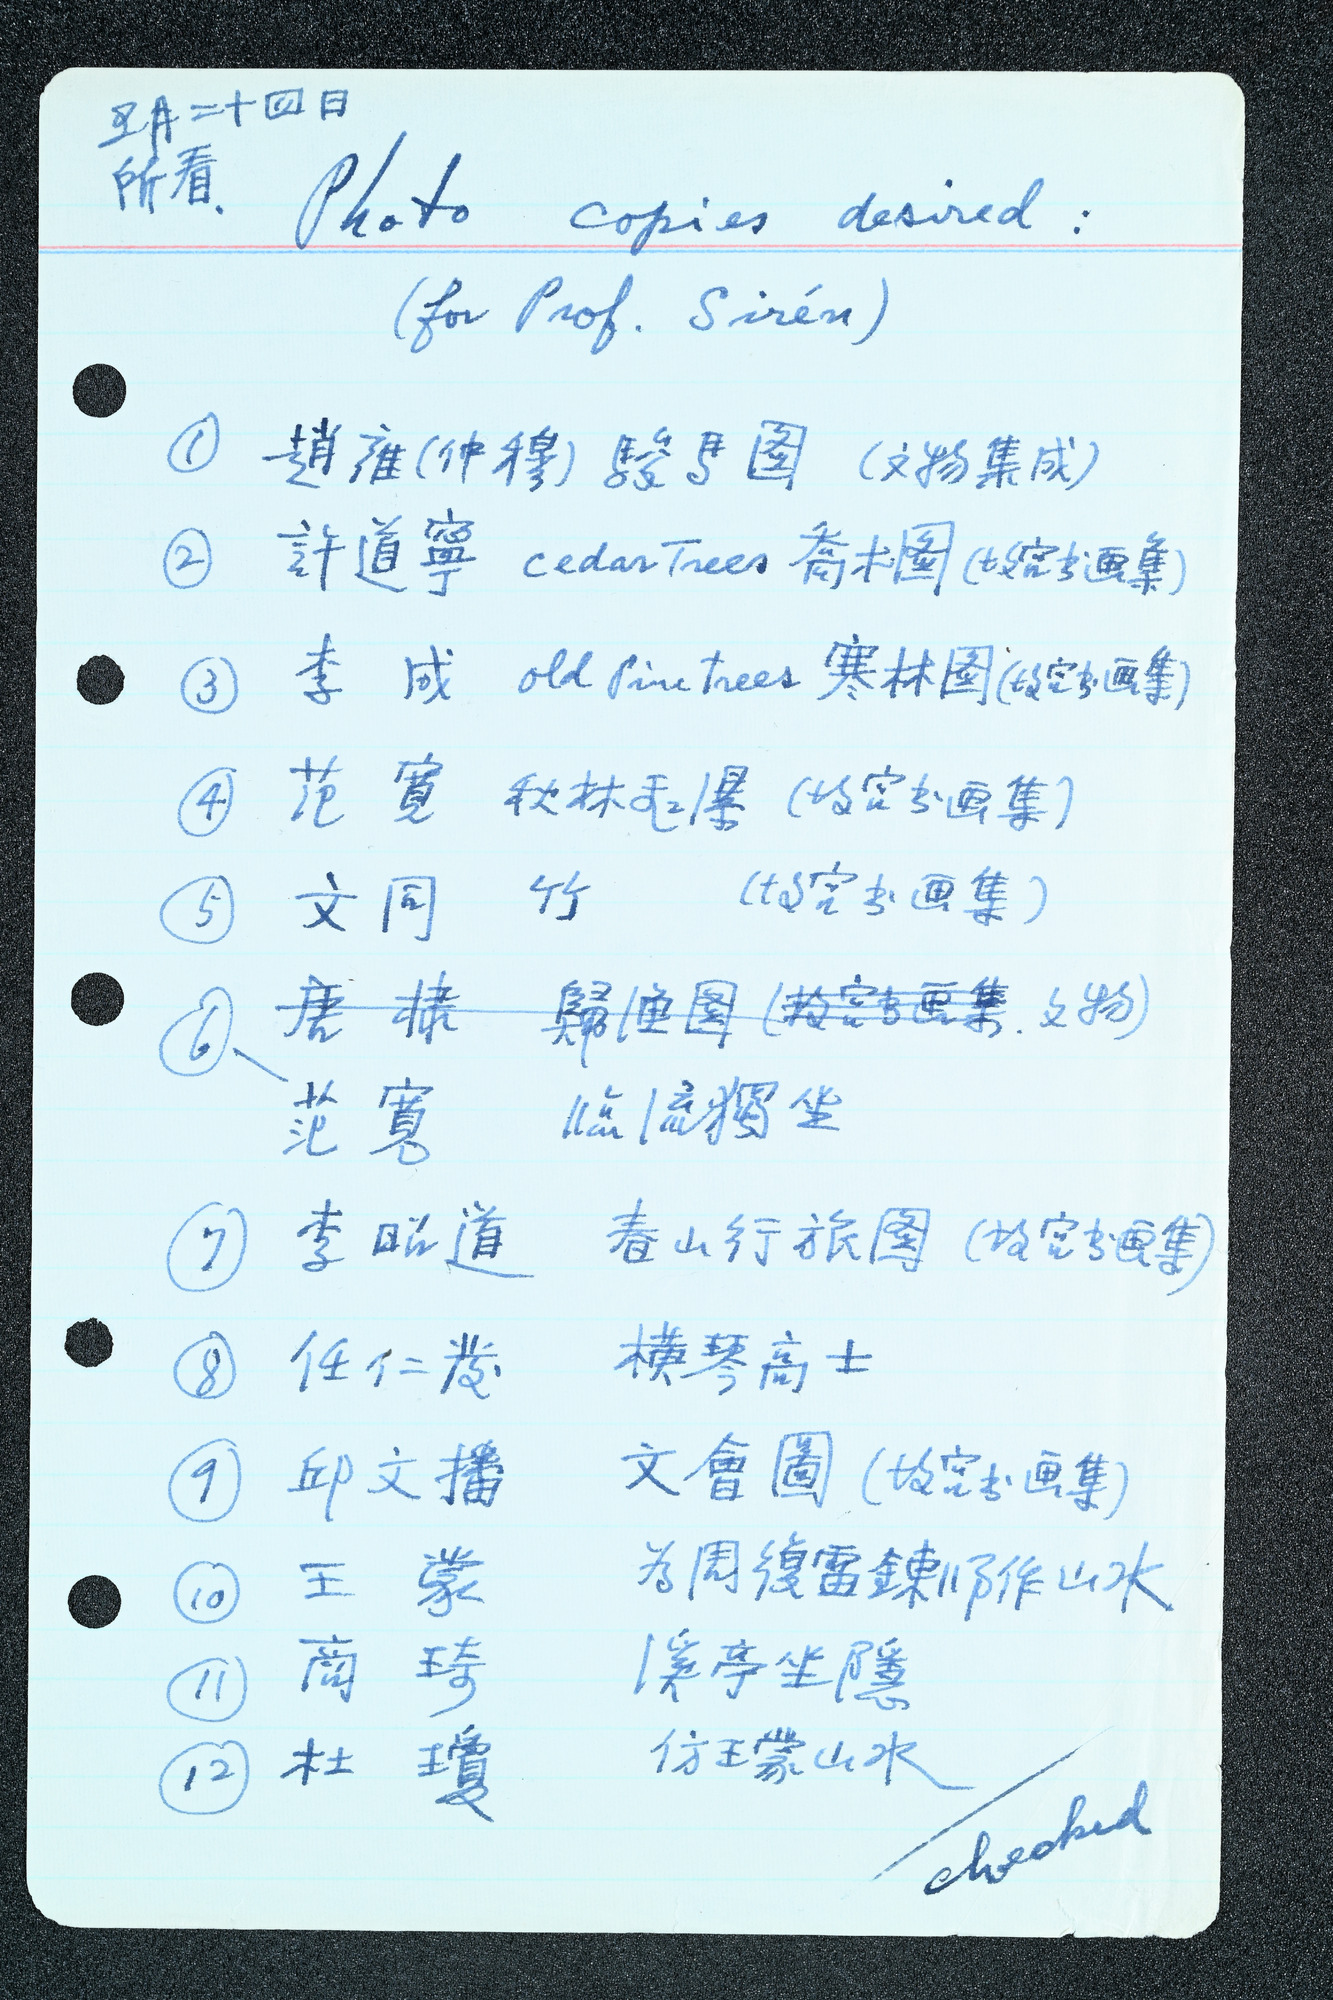 五月二十四日
所看.
Photo copies desired:
(for Prof. Sirén)
① 趙雍(仲穆) 駿馬图 (文物集成)
② 許道寧 cedar Trees 喬木圖 (故宮书画集)
③ 李成 old Pine trees 寒林图 (故宮书画集)
④ 范寬 秋林飛瀑 (故宮书画集)
⑤ 文同 竹 (故宮书画集)
⑥ 唐棣 歸漁图 (故宮书画集. 文物)
范寬 臨流獨坐
⑦ 李昭道 春山行旅图 (故宮书画集)
⑧ 任仁發 横琴高士
⑨ 邱文播 文會圖 (故宮书画集)
⑩ 王蒙 为周復雷鍊师作山水
⑪ 商琦 溪亭坐隱
⑫ 杜瓊 仿王蒙山水
checked